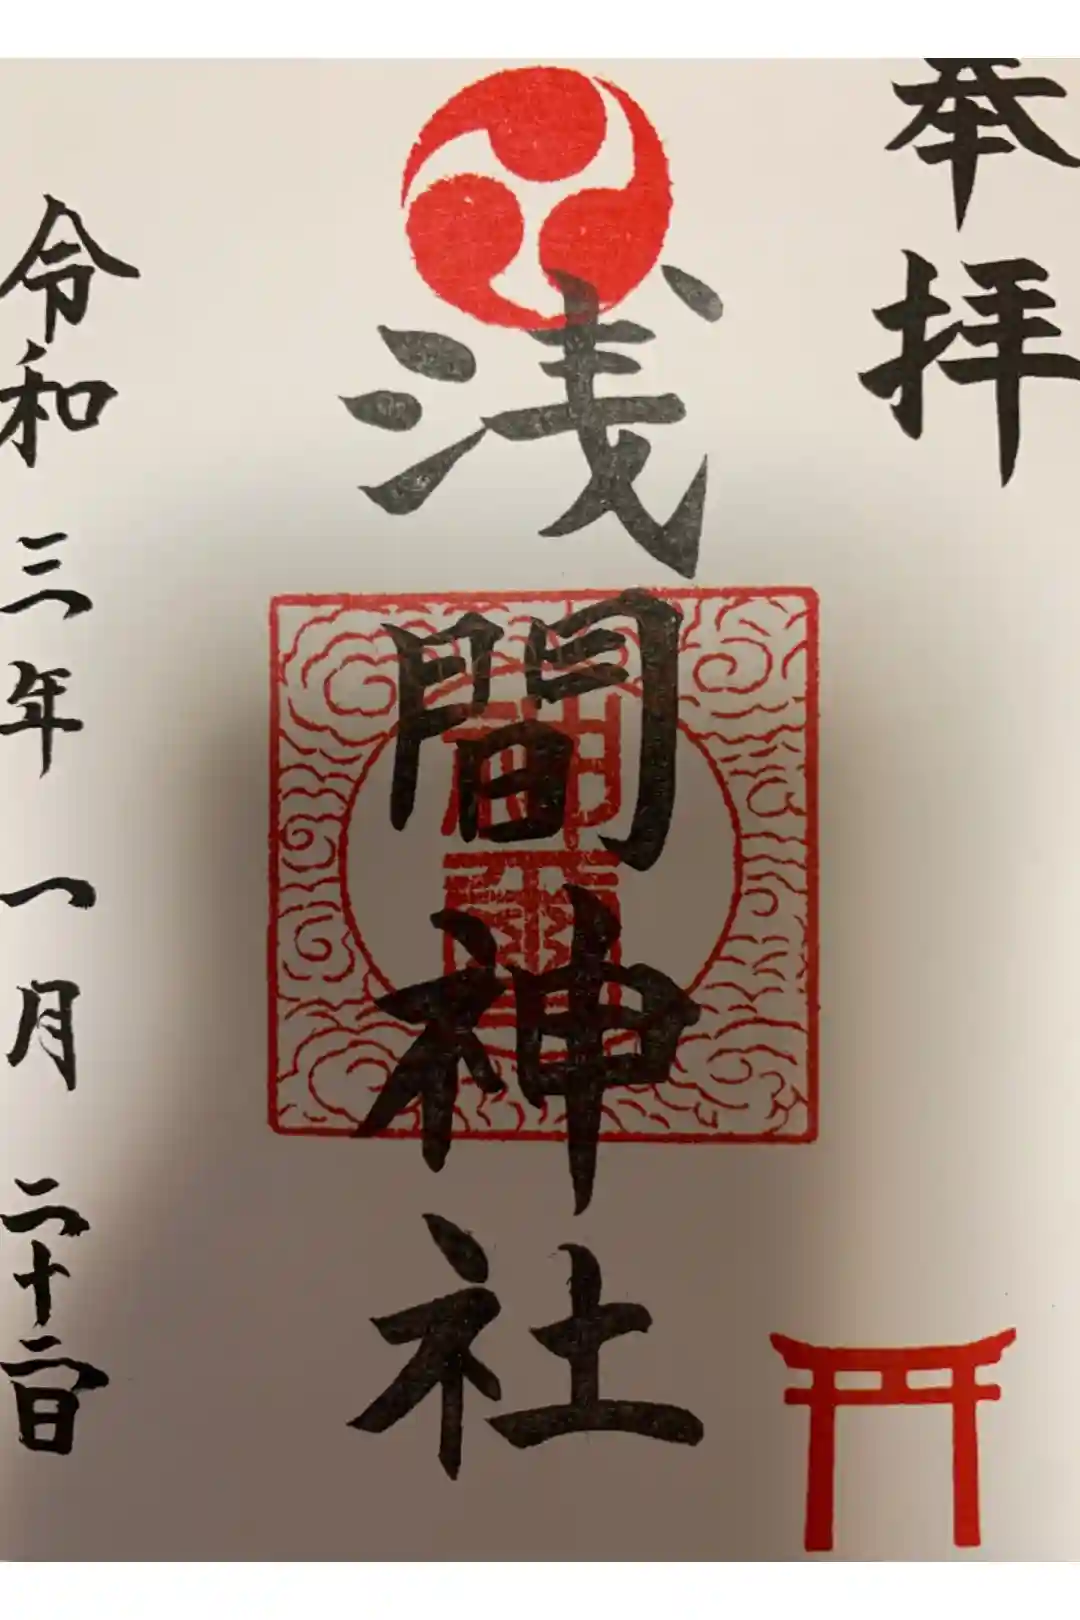 奉拝
浅間神社
令和三年一月二十二日